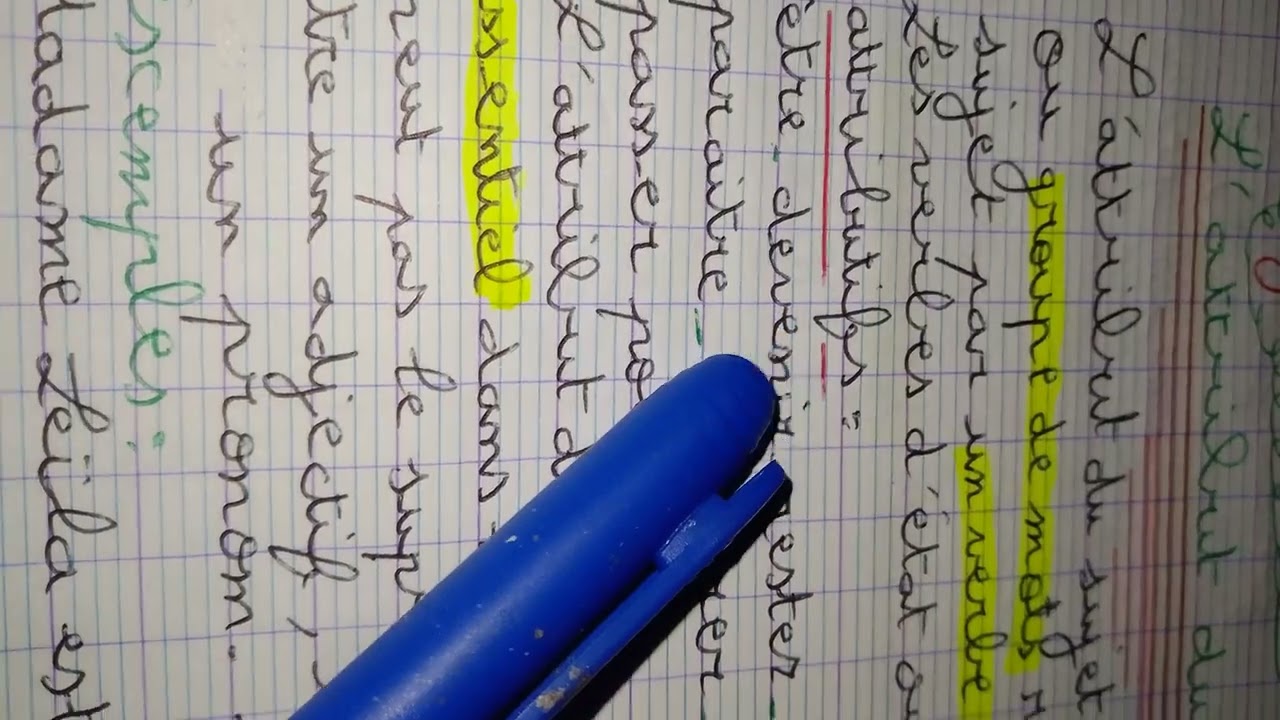 L'attribut du
L'áttribut du sujet
ou groupe de mots
sujet par un verbe
Les verbes d'état
attributifs :
être - devenir ester -
paraître -
passer
L'attribut
essentiel dans
peut pas le sup
tre un adjectif,
un pronom.
xemples :
Madame Leïla est